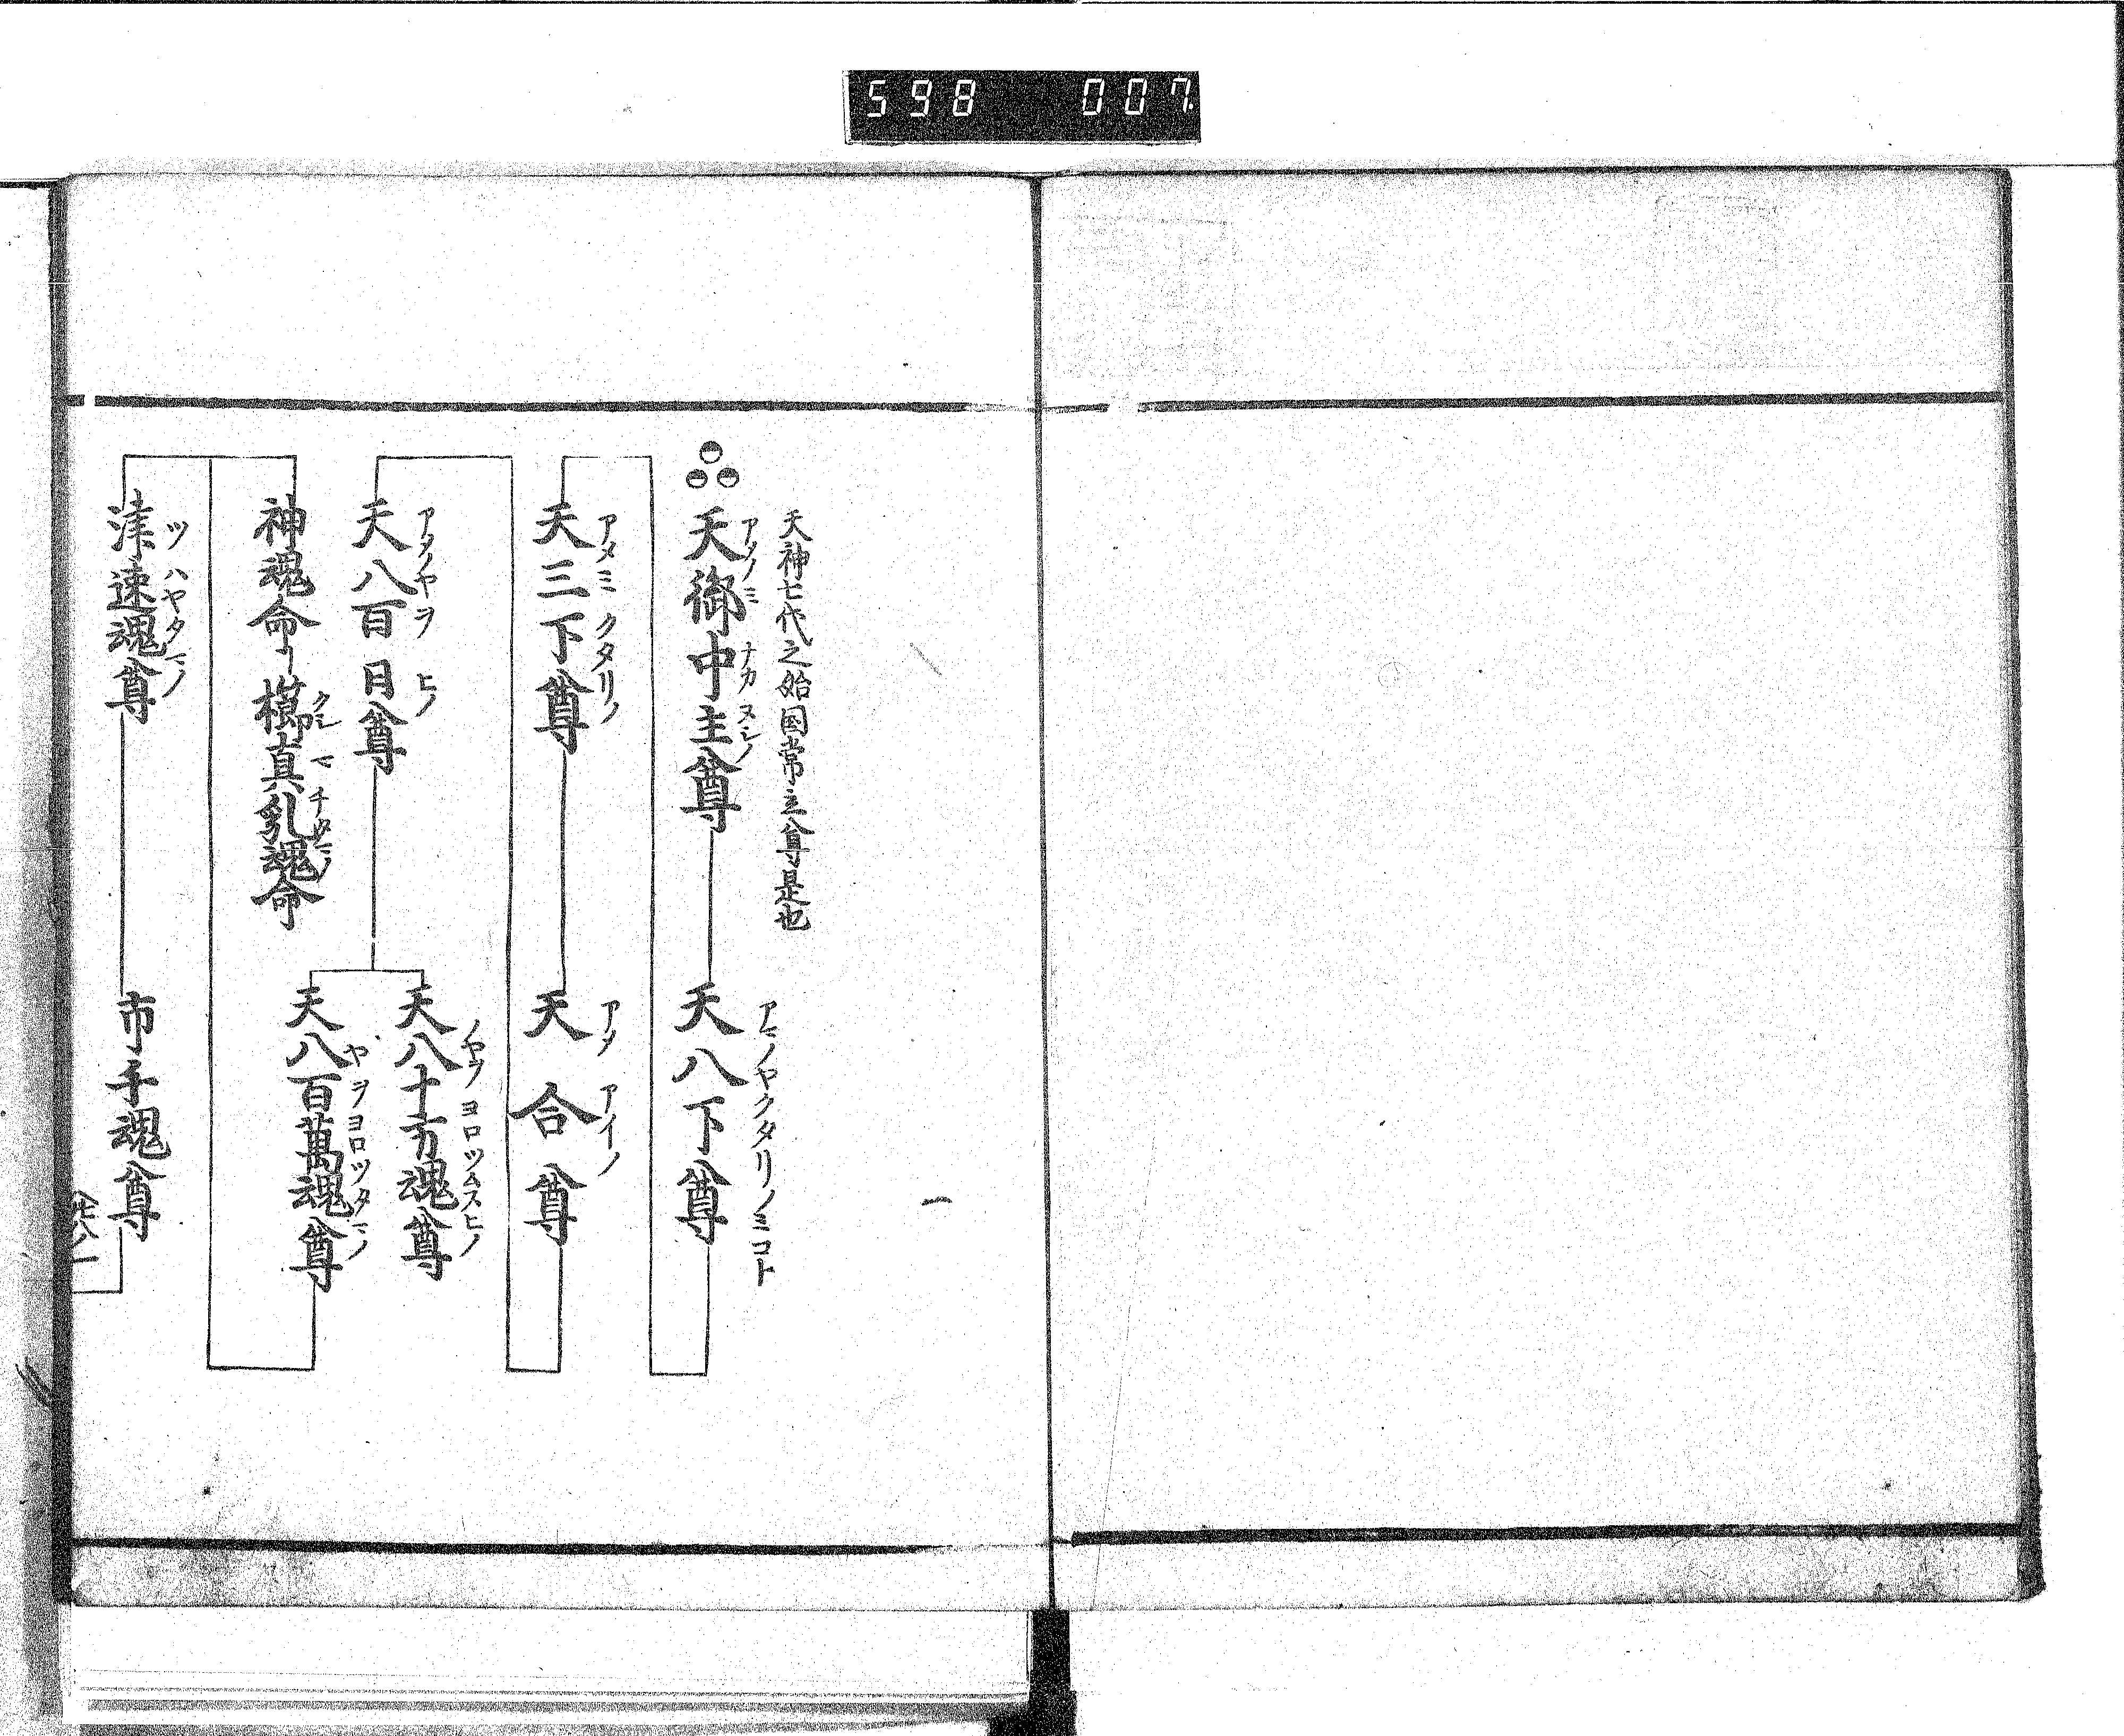 598 007
天神七代之始国常立尊是也
天御中主尊
アメノミナカヌシノ
天八下尊
アマノヤクタリノミコト
天三下尊
アメミクタリノ
天合尊
アメアイノ
天八百日尊
アメノヤヲヒノ
天八十万魂尊
ノヤソヨロツムスヒノ
天八百萬魂尊
ヤヲヨロツタマノ
神魂命
櫛真乳魂命
クシマチタマノ
津速魂尊
ツハヤタマノ
市千魂尊
一